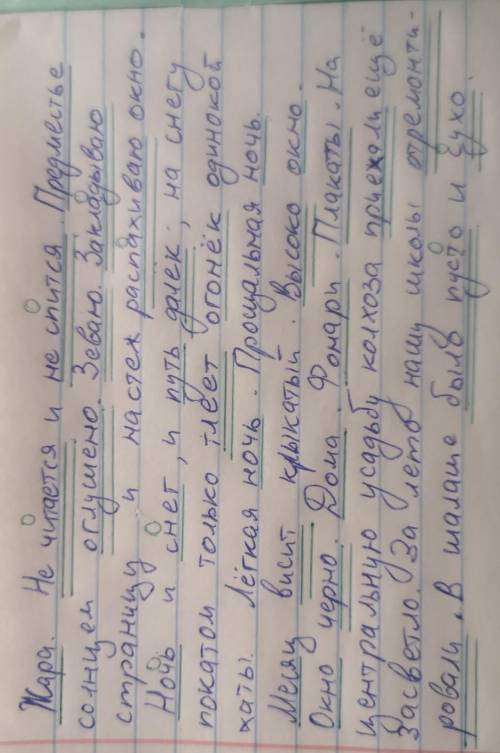 Жара. Не читается и не спится. Предместье
солнцем оглушено. Зеваю. Закладываю
страницу и настеж распахиваю окно.
Ночь и снег, и путь далёк; на снегу
покатом только тлеет огонёк одинокой
хаты. Лёгкая ночь. Прощальная ночь.
Месяц висит крыкатый. Высоко окно.
Окно черно. Дома. Фонари. Плакаты. На
центральную усадьбу колхоза приехали ещё
засветло. За лето нашу школы отремонти-
ровали. В шалаше было пусто и сухо.